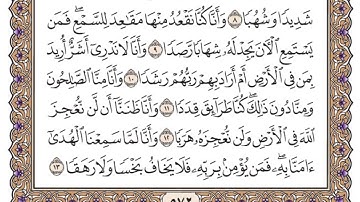 شَدِيدًا وَشُهُبًا ٨ وَأَنَّا كُنَّا نَقْعُدُ مِنْهَا مَقَٰعِدَ لِلسَّمْعِ ۖ فَمَن
يَسْتَمِعِ الْآنَ يَجِدْ لَهُۥ شِهَابًا رَّصَدًا ٩ وَأَنَّا لَا نَدْرِىٓ أَشَرٌّ أُرِيدَ
بِمَن فِى الْأَرْضِ أَمْ أَرَادَ بِهِمْ رَبُّهُمْ رَشَدًا ١٠ وَأَنَّا مِنَّا الصَّٰلِحُونَ
وَمِنَّا دُونَ ذَٰلِكَ ۖ كُنَّا طَرَآئِقَ قِدَدًا ١١ وَأَنَّا ظَنَنَّآ أَن لَّن نُّعْجِزَ
اللَّهَ فِى الْأَرْضِ وَلَن نُّعْجِزَهُۥ هَرَبًا ١٢ وَأَنَّا لَمَّا سَمِعْنَا الْهُدَىٰٓ
ءَامَنَّا بِهِۦ ۖ فَمَن يُؤْمِنۢ بِرَبِّهِۦ فَلَا يَخَافُ بَخْسًا وَلَا رَهَقًا ١٣
٥٧٢